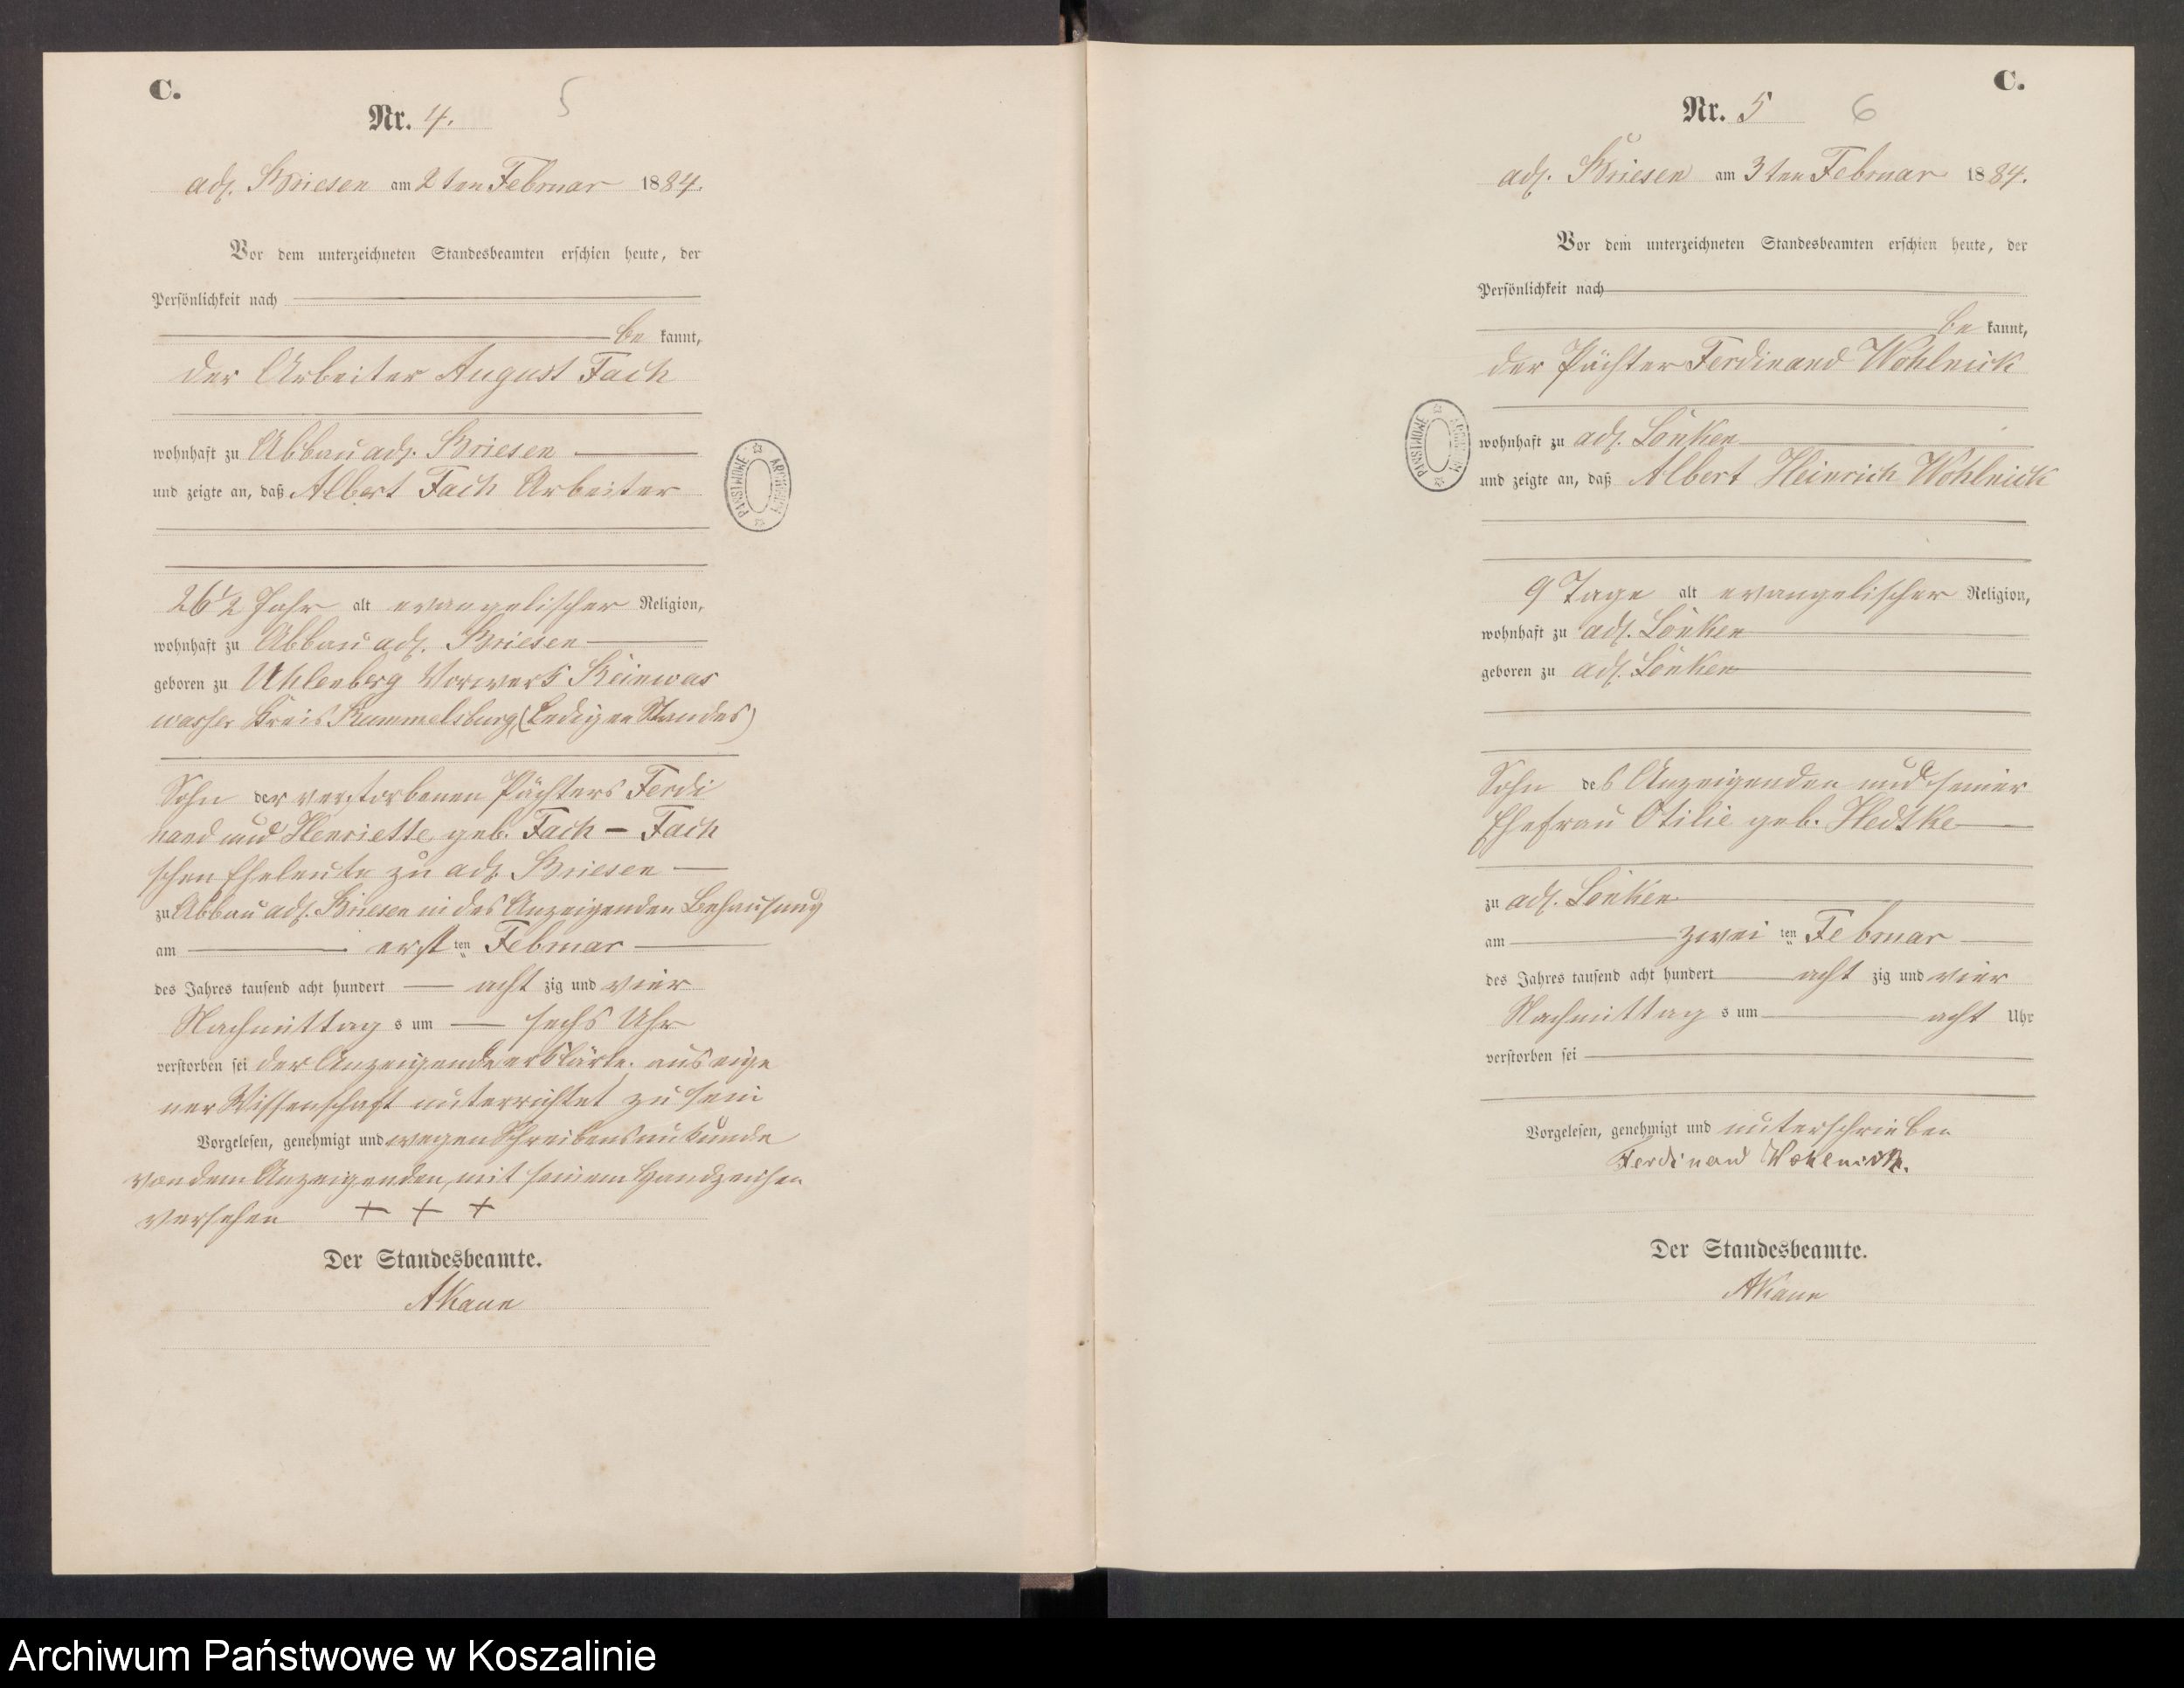 C.
Nr. 4.
5
adl. Briesen am 2ten Februar 1884.
Vor dem unterzeichneten Standesbeamten erschien heute, der
Persönlichkeit nach
be kannt,
der Arbeiter August Fach
wohnhaft zu Abbau adl. Briesen
und zeigte an, daß Albert Fach Arbeiter
26 1/2 Jahr alt evangelischer Religion,
wohnhaft zu Abbau adl. Briesen
geboren zu Uhlenberg Vorwerk Reinwas
wasser Kreis Rummelsburg (Ledigen Standes)
Sohn der verstorbenen Pächters Ferdi
nand und Henriette geb. Fach - Fach
schen Eheleute zu adl. Briesen
zu Abbau adl. Briesen in des Anzeigenden Behausung
am erst ten Februar
des Jahres tausend acht hundert acht zig und vier
Nachmittag s um sechs Uhr
verstorben sei der Anzeigende erklärte, aus eige
ner Wissenschaft unterrichtet zu sein
Vorgelesen, genehmigt und wegen Schreibensunkunde
von dem Anzeigenden, mit seinem Handzeichen
versehen + + +
Der Standesbeamte.
AKaun
ARCHIWUM PAŃSTWOWE
C.
Nr. 5
6
adl. Briesen am 3ten Februar 1884.
Vor dem unterzeichneten Standesbeamten erschien heute, der
Persönlichkeit nach
be kannt,
der Pächter Ferdinand Wohlnick
wohnhaft zu adl. Lönken
und zeigte an, daß Albert Heinrich Wohlnick
9 Tage alt evangelischer Religion,
wohnhaft zu adl. Lönken
geboren zu adl. Lönken
Sohn des Anzeigenden und seiner
Ehefrau Otilie geb. Hedtke
zu adl. Lönken
am zwei ten Februar
des Jahres tausend acht hundert acht zig und vier
Nachmittag s um acht Uhr
verstorben sei
Vorgelesen, genehmigt und unterschrieben
Ferdinand Wohlnick.
Der Standesbeamte.
AKaun
ARCHIWUM PAŃSTWOWE
Archiwum Państwowe w Koszalinie